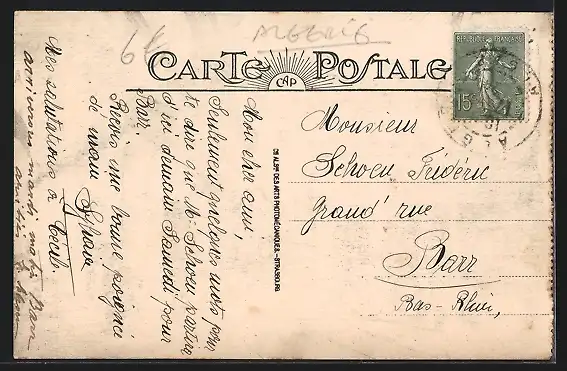 6 f
ALGERIE
CARTE POSTALE
CAP
REPUBLIQUE FRANÇAISE
15
Mon cher ami,
Seulement quelques mots pour
te dire que M. Schoen partira
d'ici demain Samedi pour
Barr.
Reçois une bonne poignée
de main
Mes salutations à
arriverons mardi matin
DES ARTS PHOTOMÉCANIQUES - STRASBOURG
Monsieur
Schoen Frédéric
Grand' rue
Barr
Bas-Rhin,